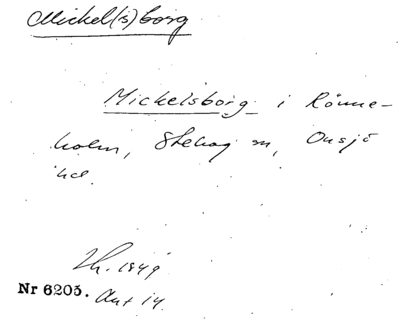 Mickel(s)borg
Mickelsborg i Rönne-
holm, Stehag sn, Onsjö
hd.
Th. 1849
Nr 6205. Ant 14.